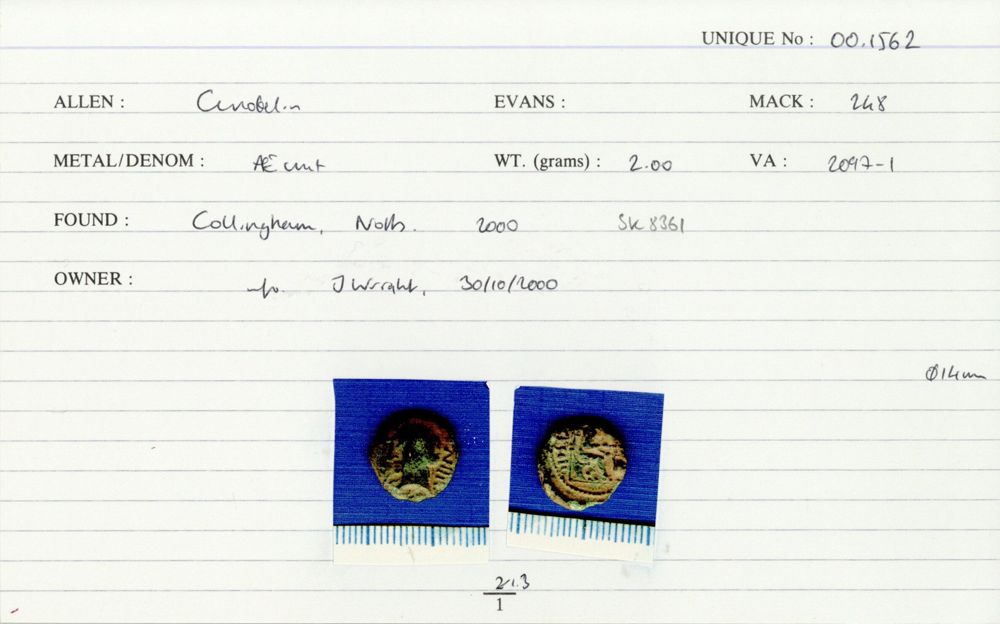 UNIQUE No : 00.1562
ALLEN : Cunobelin EVANS : MACK : 248
METAL/DENOM : Æ unit WT. (grams) : 2.00 VA : 2097-1
FOUND : Collingham, Notts. 2000 SK 8361
OWNER : info. J Wright, 30/10/2000
Ø14mm
21.3
1